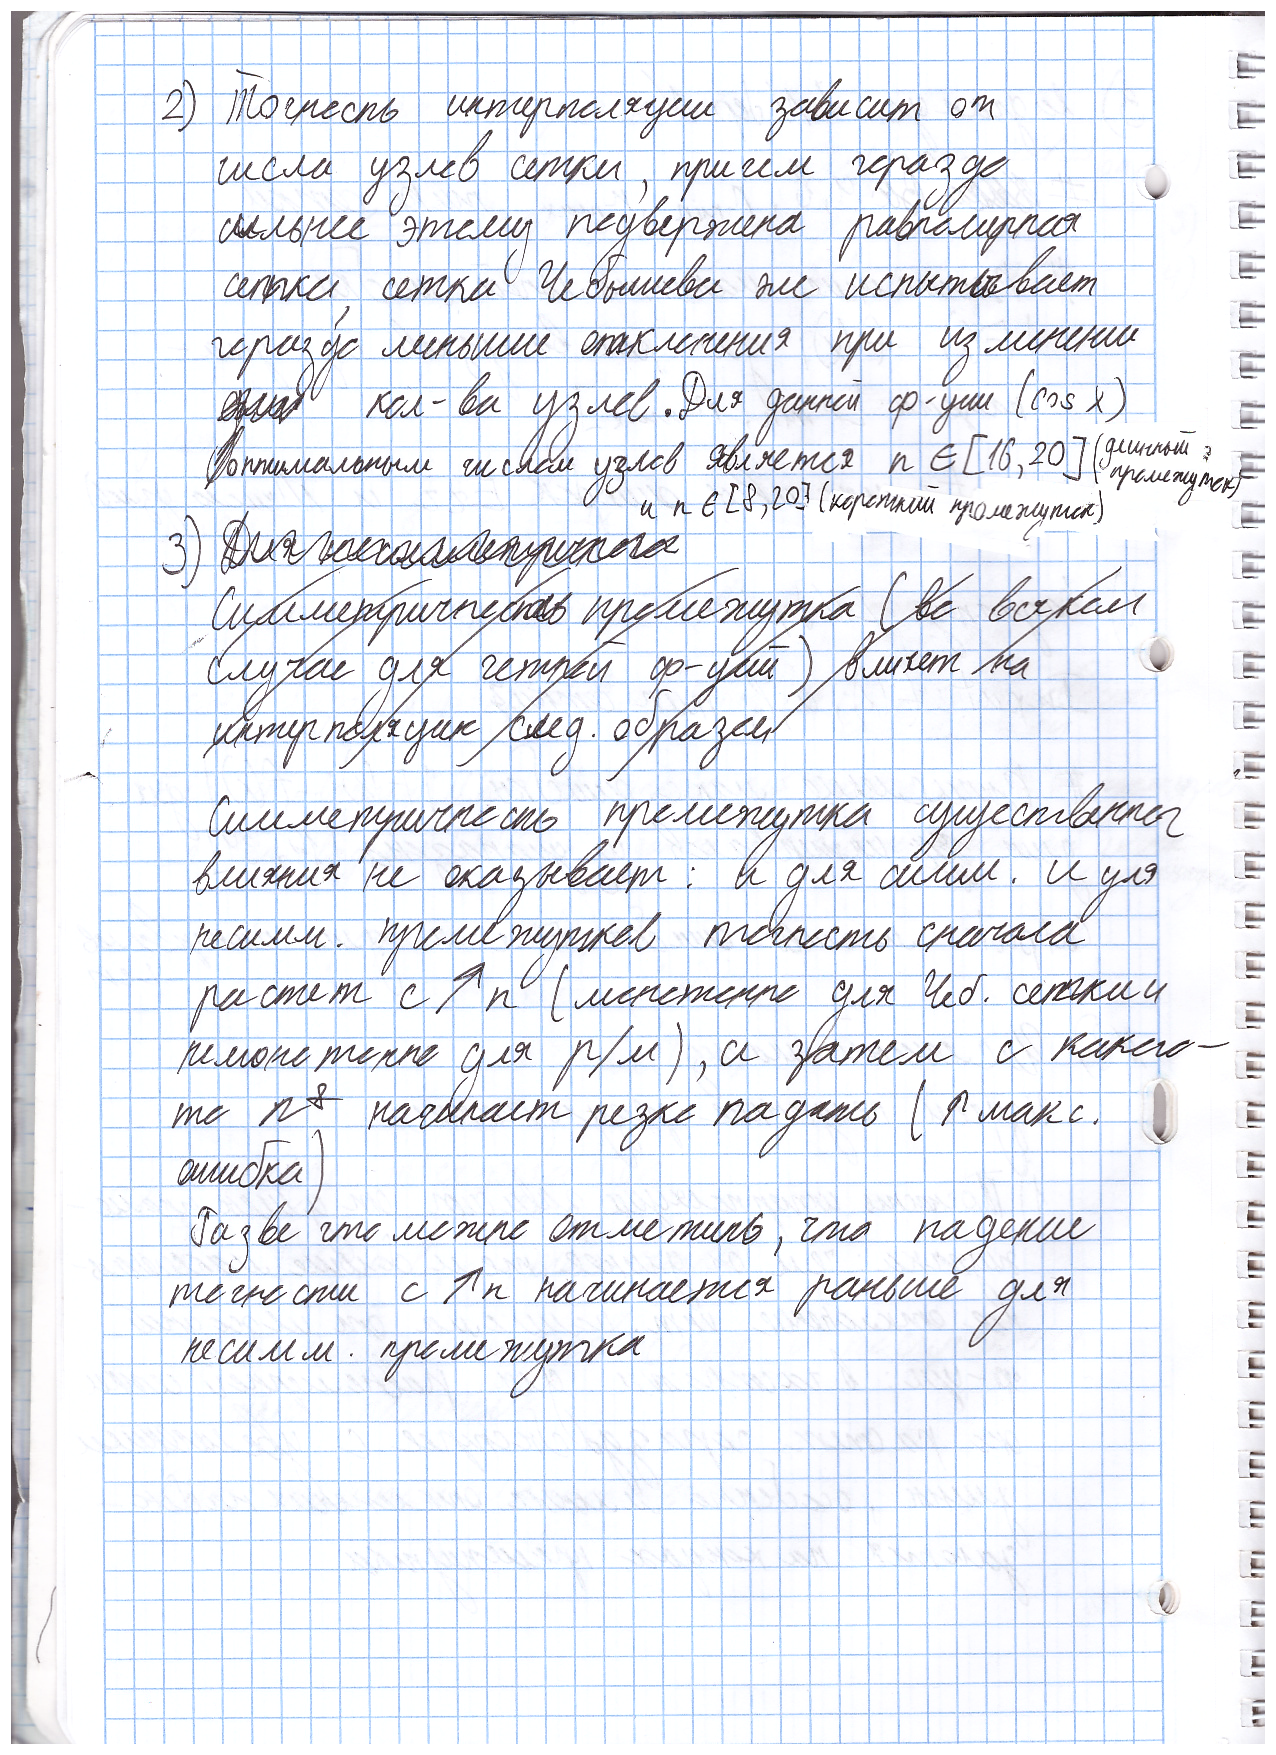 2) Точность интерполяции зависит от
числа узлов сетки, причем гораздо
сильнее этому подвержена равномерная
сетка, сетка Чебышева же испытывает
гораздо меньшие отклонения при изменении
кол-ва узлов. Для данной ф-ции (cos x)
оптимальным числом узлов является n ∈ [16, 20] (длинный
промежуток)
и n ∈ [8, 20] (короткий промежуток)
3) Для
Симметричность промежутка (во всяком
случае для четной ф-ций) влияет на
интерполяцию след. образом
Симметричность промежутка существенного
влияния не оказывает: и для симм. и для
несимм. промежутков точность сначала
растет с ↑n (монотонно для Чеб. сетки и
немонотонно для р/м), а затем с какого-
то n* начинает резко падать (↑ макс.
ошибка)
Разве что можно отметить, что падение
точности с ↑n начинается раньше для
несимм. промежутка